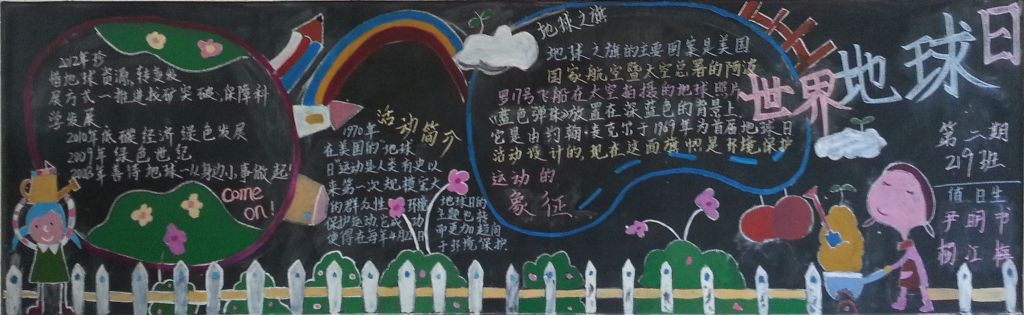 2012年珍
惜地球资源,转变发
展方式—推进找矿突破,保障科
学发展
2010年低碳经济 绿色发展
2009年绿色世纪
2008年善待地球—从身边小事做起!
come
on!
活动简介
1970年
在美国的"地球
日"活动是人类有史以
来第一次规模宏大
的群众性的环境
保护运动,它的活动
使得在每年4月22日
地球日的
主题包括
而更加趋向
于环境保护.
地球之旗
地球之旗的主要图案是美国
国家航空暨太空总署的阿波
罗17号飞船在太空拍摄的地球照片
《蓝色弹珠》放置在深蓝色的背景上,
它是由约翰·麦克尔于1969年为首届地球日
活动设计的,现在这面旗帜是环境保护
运动的
象征
世界地球日
第二期
219班
值日生
尹明书
杨江梅